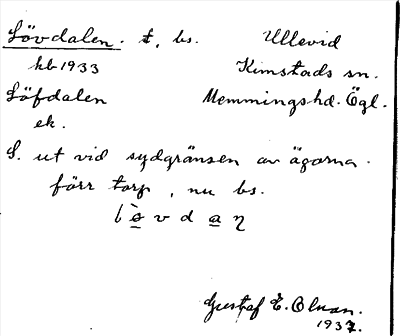 Lövdalen. t, bs. Ullevid
kb 1933 Kimstads sn.
Löfdalen Memmings hd. Ögl.
ek.
S. ut vid sydgränsen av ägorna.
förr torp, nu bs.
Gustaf E. Olsson.
1937.